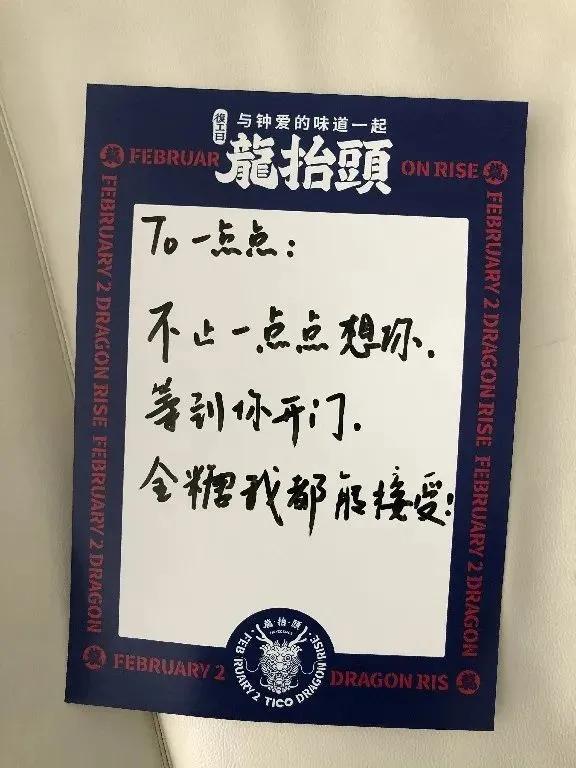 復工日
与钟爱的味道一起
龍抬頭
FEBRUAR
ON RISE
To 一点点:
不止一点点想你.
等到你开门.
全糖我都能接受!
FEBRUARY 2 DRAGON RISE FEBRUARY 2 DRAGON
FEBRUARY 2 DRAGON RISE FEBRUARY 2 DRAGON
龍·抬·頭
FEBRUARY 2 TICO DRAGON RISE
FEBRUARY 2
DRAGON RIS